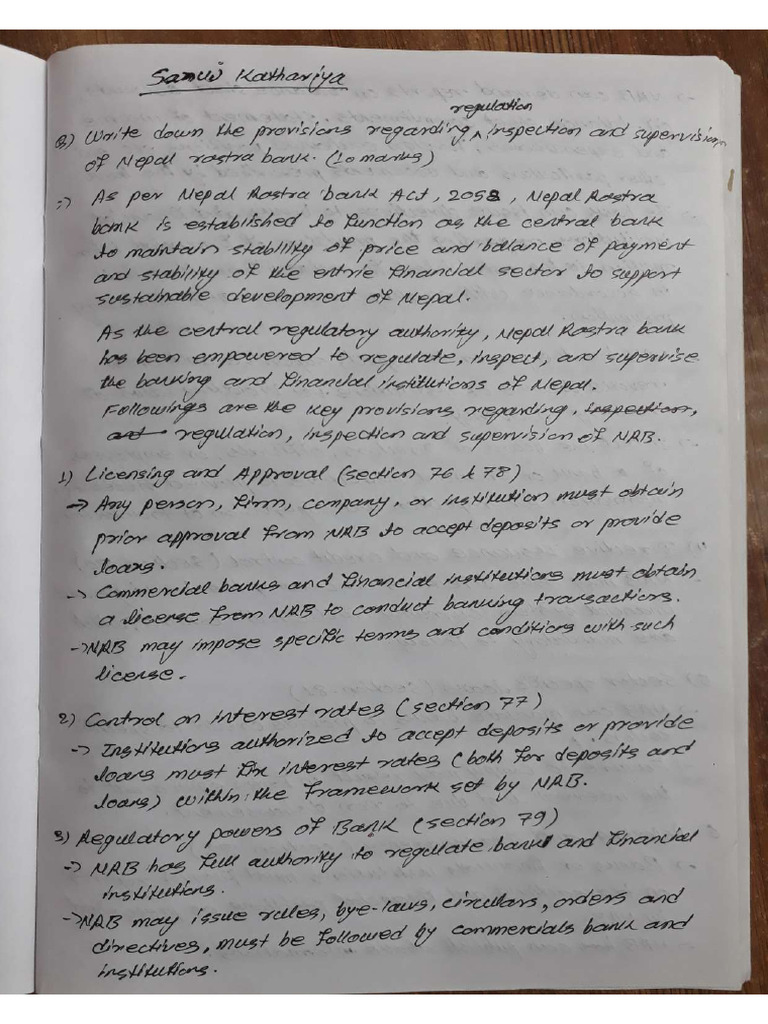 Samuj Kathariya
regulation
Q) Write down the provisions regarding ^ inspection and supervision
of Nepal rastra bank. (10 marks)
:) As per Nepal Rastra bank Act, 2058, Nepal Rastra
bank is established to function as the central bank
to maintain stability of price and balance of payment
and stability of the entrie financial sector to support
sustainable development of Nepal.
As the central regulatory authority, Nepal Rastra bank
has been empowered to regulate, inspect, and supervise
the banking and financial institutions of Nepal.
Followings are the key provisions regarding, inspection,
and regulation, inspection and supervision of NRB.
1) Licensing and Approval (section 76 & 78)
→ Any person, firm, company, or institution must obtain
prior approval from NRB to accept deposits or provide
loans.
→ Commercial banks and financial institutions must obtain
a license from NRB to conduct banking transactions.
→ NRB may impose specific terms and conditions with such
license.
2) Control on interest rates (section 77)
→ Institutions authorized to accept deposits or provide
loans must fix interest rates (both for deposits and
loans) within the framework set by NRB.
3) Regulatory powers of Bank (section 79)
→ NRB has full authority to regulate bank and financial
institutions.
→ NRB may issue rules, bye-laws, circulars, orders and
directives, must be followed by commercials bank and
institutions.